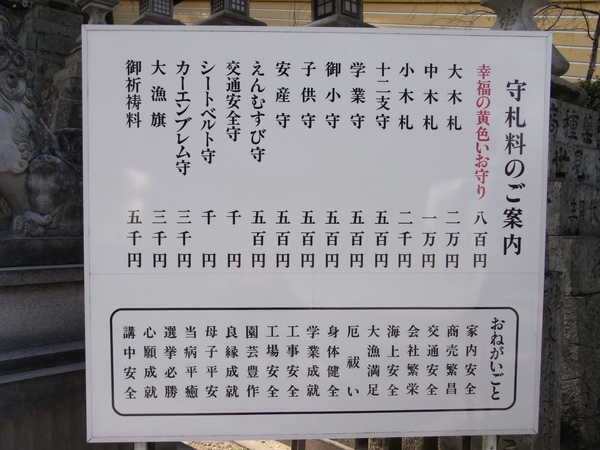 守札料のご案内
幸福の黄色いお守り 八百円
大木札 二万円
中木札 一万円
小木札 二千円
十二支守 五百円
学業守 五百円
御小守 五百円
子供守 五百円
安産守 五百円
えんむすび守 五百円
交通安全守 千円
シートベルト守 千円
カーエンブレム守 三千円
大漁旗 三千円
御祈祷料 五千円
おねがいごと
家内安全
商売繁昌
交通安全
会社繁栄
海上安全
大漁満足
厄祓い
身体健全
学業成就
工事安全
工場安全
園芸豊作
良縁成就
母子平安
当病平癒
選挙必勝
心願成就
講中安全